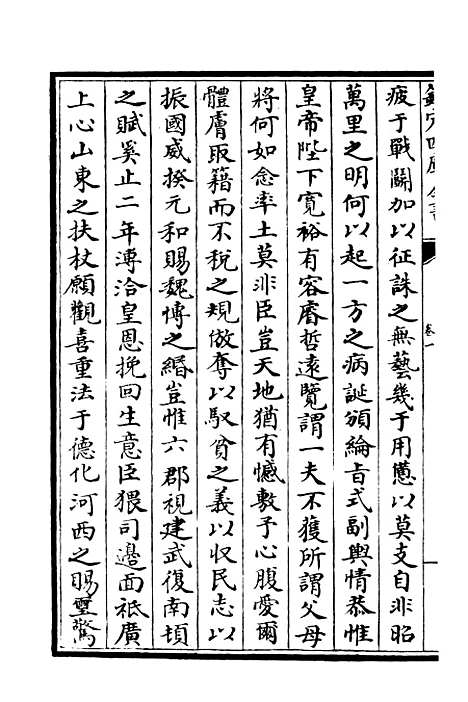 欽定四庫全書
卷一
疲于戰鬭加以征誅之無藝幾于用憊以莫支自非昭
萬里之明何以起一方之病誕頒綸㫖式副輿情恭惟
皇帝陛下寛裕有容睿哲逺覽謂一夫不獲所謂父母
將何如念率土莫非臣豈天地猶有憾敷予心腹愛爾
體膚取籍而不稅之規倣奪以馭貧之義以収民志以
振國威揆元和賜魏博之緡豈惟六郡視建武復南頓
之賦奚止二年溥洽皇恩挽回生意臣猥司邊面祗廣
上心山東之扶杖願觀喜重法于德化河西之賜璽驚